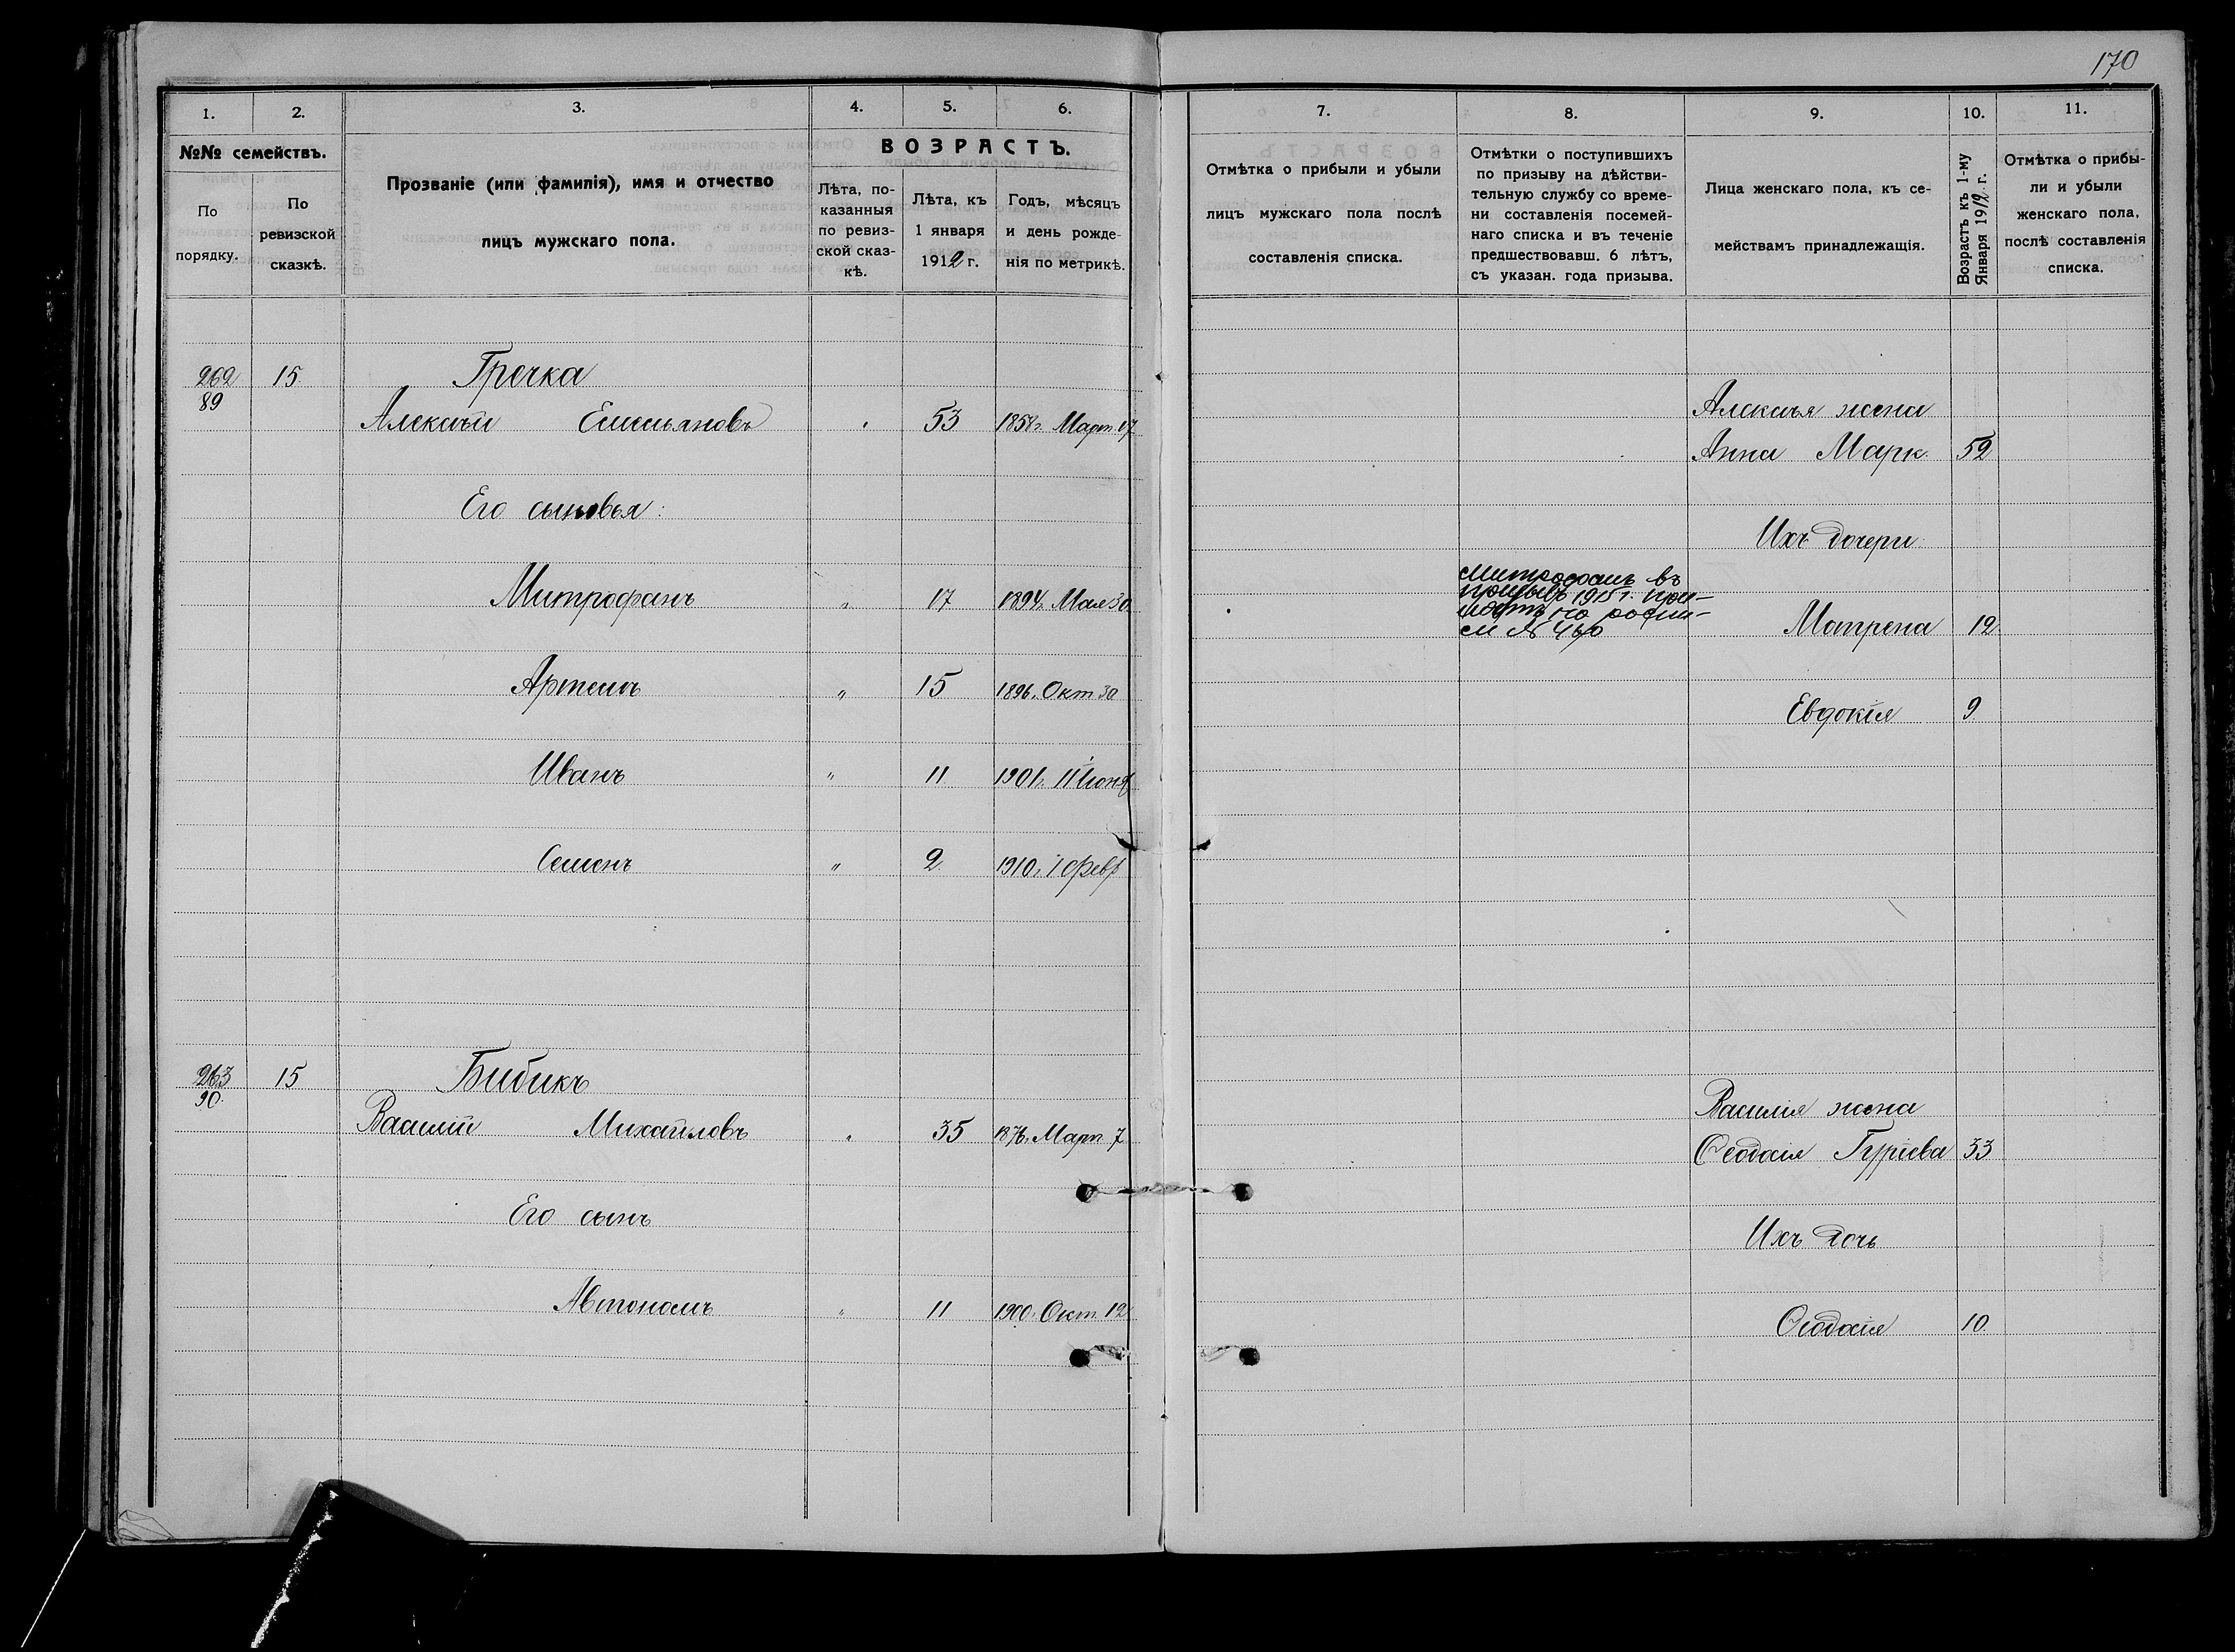 170
1. 2. 3. 4. 5. 6. 7. 8. 9. 10. 11.
№№ семействъ.
По порядку.
По ревизской сказкѣ.
Прозваніе (или фамилія), имя и отчество
лицъ мужскаго пола.
ВОЗРАСТЪ.
Лѣта, по-
казанныя
по ревиз-
ской сказ-
кѣ.
Лѣта, къ
1 января
1912 г.
Годъ, мѣсяцъ
и день рожде-
нія по метрикѣ.
Отмѣтка о прибыли и убыли
лицъ мужскаго пола послѣ
составленія списка.
Отмѣтки о поступившихъ
по призыву на дѣйстви-
тельную службу со време-
ни составленія посемей-
наго списка и въ теченіе
предшествовавш. 6 лѣтъ,
съ указан. года призыва.
Лица женскаго пола, къ се-
мействамъ принадлежащія.
Возрастъ къ 1-му
Января 1912 г.
Отмѣтка о прибы-
ли и убыли
женскаго пола,
послѣ составленія
списка.
262 15. Гречка
89
Алексѣй Емельяновъ " 53 1858г. Март. 17
Алексѣя жена
Анна Марк. 52
Его сыновья:
Ихъ дочери:
Митрофанъ " 17 1894г. Мая 30
Митрофанъ въ
призывъ 1915 г. при-
нятъ по роспи-
си № 460
Матрена 12
Артемъ " 15 1896г. Окт 30
Евдокія 9
Иванъ " 11 1901г. 11 Іюня
Семенъ " 2 1910г. 1 Февр
263 15 Бибикъ
90.
Василій Михайловъ " 35 1876г. Март 7
Василія жена
Феодосія Гуріева 33
Его сынъ
Ихъ дочь
Автономъ " 11 1900г. Окт. 12
Феодосія 10